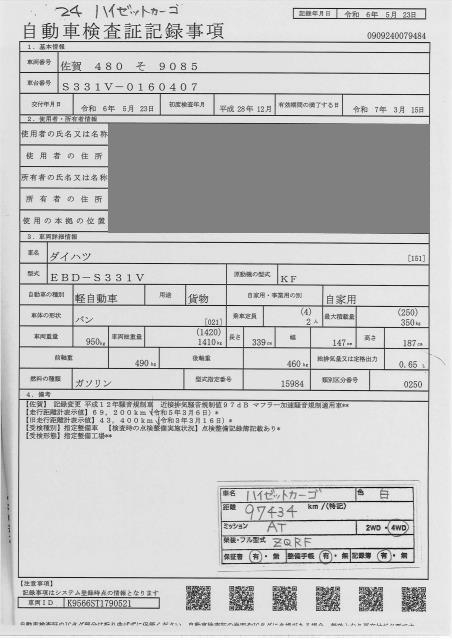 24 ハイゼットカーゴ
記録年月日 令和 6年 5月 23日
自動車検査証記録事項 0909240079484
1. 基本情報
車両番号 佐賀 480 そ 9085
車台番号 S331V-0160407
交付年月日 令和 6年 5月 23日 初度検査年月 平成 28年 12月 有効期間の満了する日 令和 7年 3月 15日
2. 使用者・所有者情報
使用者の氏名又は名称
使用者の住所
所有者の氏名又は名称
所有者の住所
使用の本拠の位置
3. 車両詳細情報
車名 ダイハツ [151]
型式 EBD-S331V 原動機の型式 KF
自動車の種別 軽自動車 用途 貨物 自家用・事業用の別 自家用
車体の形状 バン [021] 乗車定員 (4) 2人 最大積載量 (250) 350kg
車両重量 950kg 車両総重量 (1420) 1410kg 長さ 339cm 幅 147cm 高さ 187cm
前軸重 490kg 後軸重 460kg 総排気量又は定格出力 0.65 L
燃料の種類 ガソリン 型式指定番号 15984 類別区分番号 0250
4. 備考
【佐賀】 記録変更 平成12年騒音規制車 近接排気騒音規制値97dB マフラー加速騒音規制適用車**
【走行距離計表示値】69,200km(令和5年3月6日)*
【旧走行距離計表示値】43,400km(令和3年3月16日)*
【受検種別】指定整備車 【検査時の点検整備実施状況】点検整備記録簿記載あり*
【受検形態】指定整備工場**
車名 ハイゼットカーゴ 色 白
距離 97434 km/(特記)
ミッション AT 2WD・4WD
架装・フル型式 ZQRF
保証書 有・無 整備手帳 有・無 記録簿 有・無
【注意事項】
記載事項はシステム登録時点の情報となります
車両ID K9566ST1790521